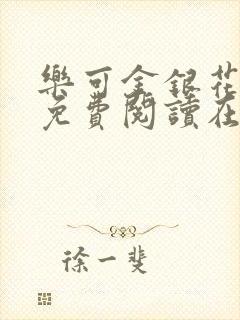 樂可金銀花
免費閱讀在
徐一斐